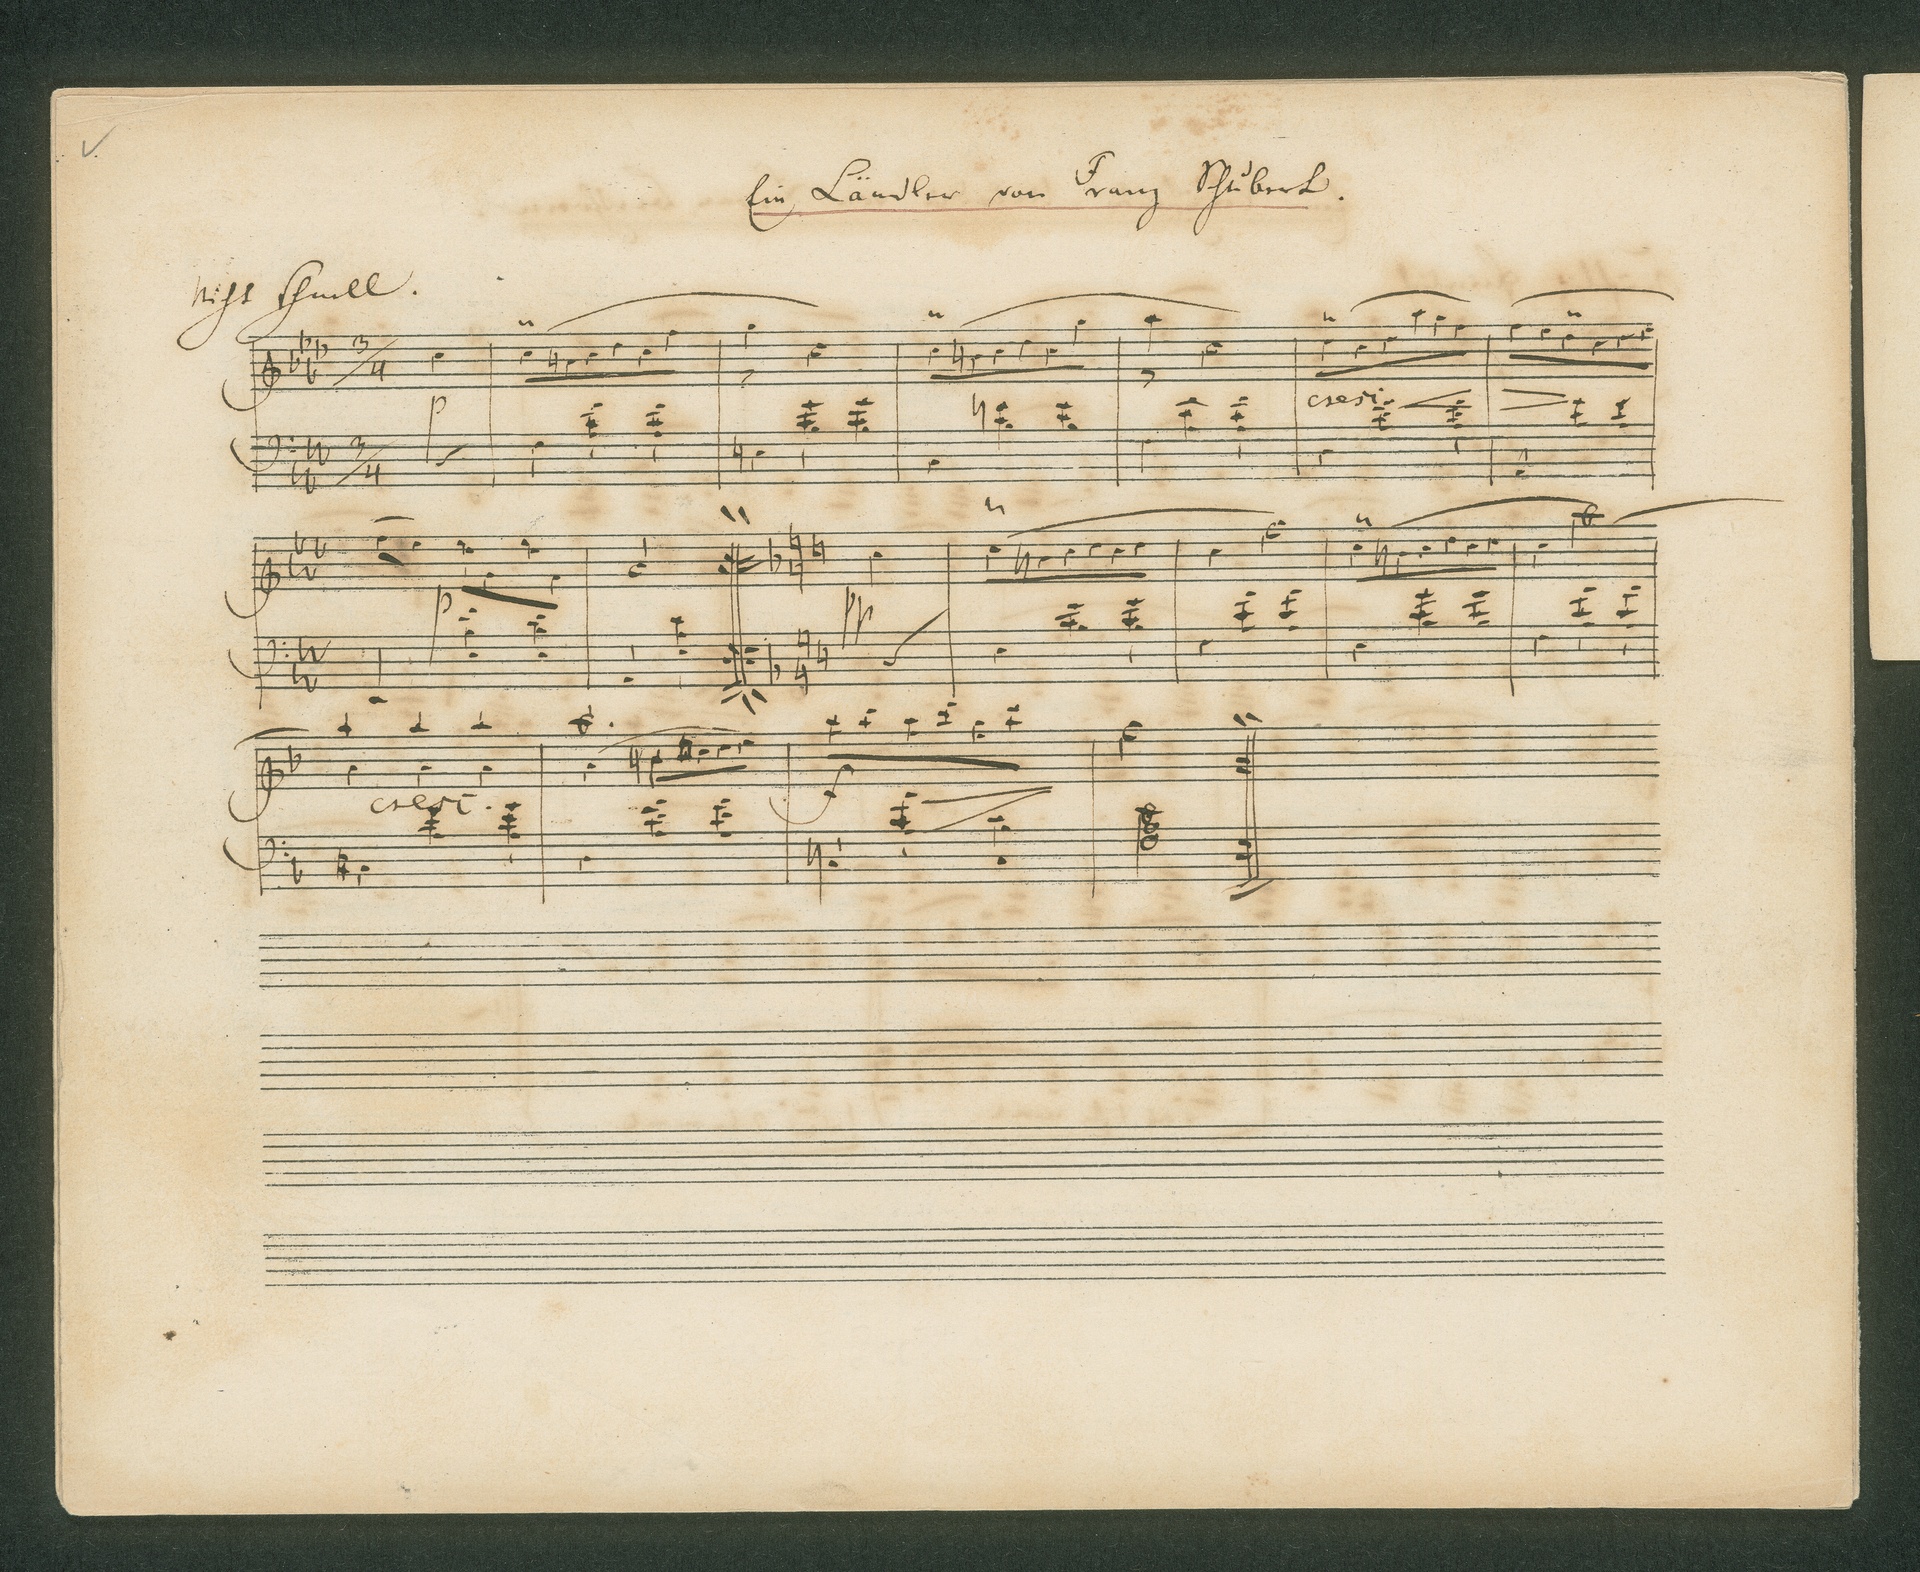 Ein Ländler von Franz Schubert.
Nicht schnell.
3/4
p
cresc.
3/4
p
pp
cresc.
f